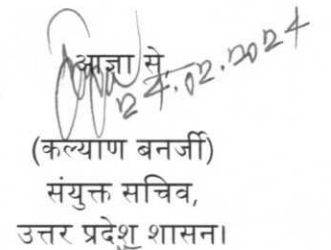 आज्ञा से,
24.02.2024
(कल्याण बनर्जी)
संयुक्त सचिव,
उत्तर प्रदेश शासन।